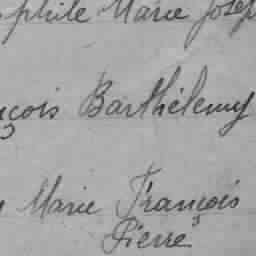 phile Marie Josep
çois Barthélemy
Marie François
Pierre